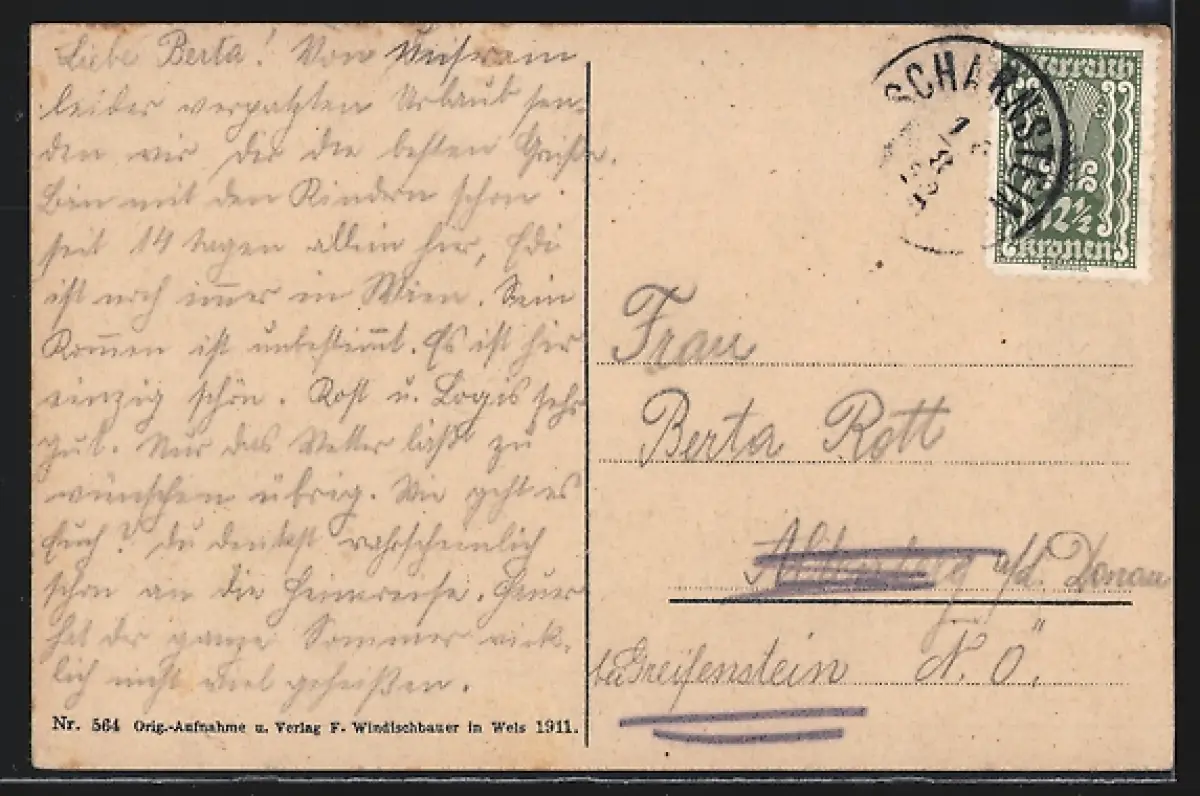 Liebe Berta! Von
leider verpatzten Urlaub sen-
den wir Dir die besten Grüße.
Bin mit den Kindern schon
seit 14 tagen allein hier, Edi
ist noch immer in Wien. Sein
Kommen ist unbestimmt. Es ist hier
einzig schön. Kost u. Logis sehr
gut. Nur das Wetter läßt zu
wünschen übrig. Wie geht es
Euch? Du denkst wahrscheinlich
schon an die Heimreise. Heuer
hat der ganze Sommer wirk-
lich nicht viel geheißen.
Nr. 564 Orig.-Aufnahme u. Verlag F. Windischbauer in Wels 1911.
SCHARNSTEIN
Österreich
12½
Kronen
Frau
Berta Rott
Altenberg a/d. Donau
bei Greifenstein N. Ö.